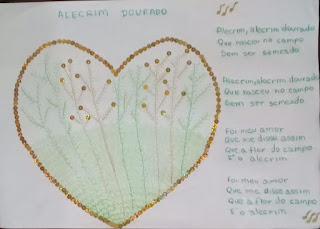 ALECRIM DOURADO
Alecrim, alecrim dourado
Que nasceu no campo
Sem ser semeado
Alecrim, alecrim dourado
Que nasceu no campo
Sem ser semeado
Foi meu amor
Que me disse assim
Que a flor do campo
É o alecrim
Foi meu amor
Que me disse assim
Que a flor do campo
É o alecrim